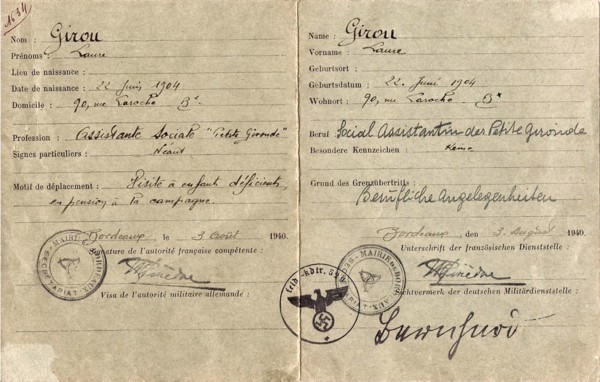 1634
Nom : Girou
Prénoms : Laure
Lieu de naissance :
Date de naissance : 22 Juin 1904
Domicile : 90, rue Laroche Bx
Profession : Assistante Sociale "Petite Gironde"
Signes particuliers : Néant
Motif de déplacement : Visite à enfants déficients,
en pension à la campagne.
Bordeaux le 3 Août 1940.
Signature de l'autorité française compétente :
Visa de l'autorité militaire allemande :
Name : Girou
Vorname : Laure
Geburtsort :
Geburtsdatum : 22. Juni 1904
Wohnort : 90, rue Laroche Bx
Beruf Social Assistantin der Petite Gironde
Besondere Kennzeichen : Keine
Grund des Grenzübertritts :
Berufliche Angelegenheiten
Bordeaux, den 3 August 1940.
Unterschrift der französischen Dienststelle :
Sichtvermerk der deutschen Militärdienststelle :
MAIRIE DE BORDEAUX
MAIRIE DE BORDEAUX
Feld-Kdtr.